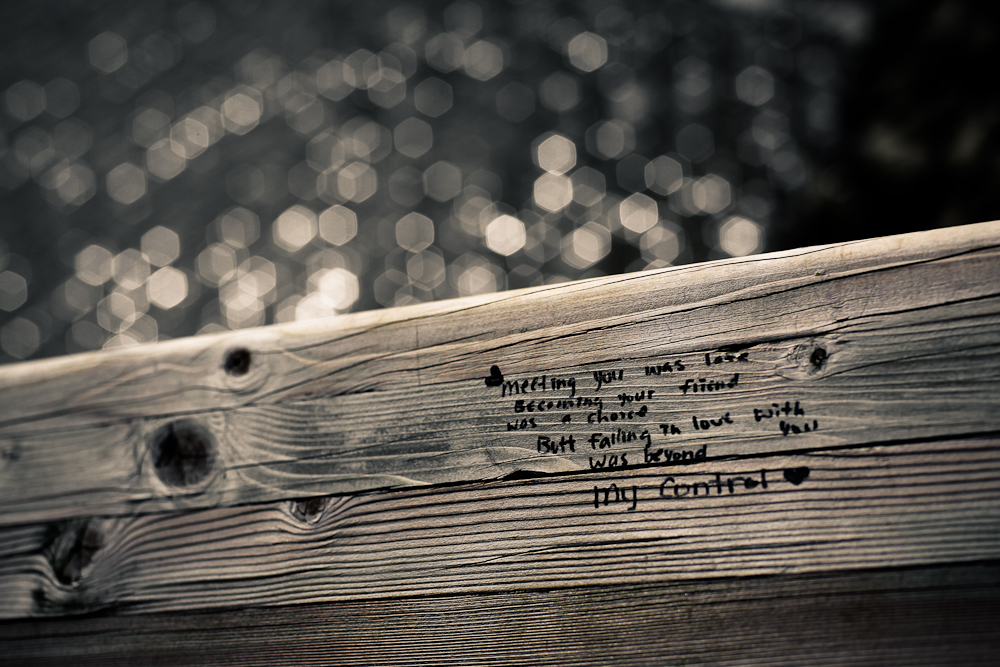 Meeting you was love
Becoming your friend
was a choice
Butt falling in love with
you
was beyond
My Control